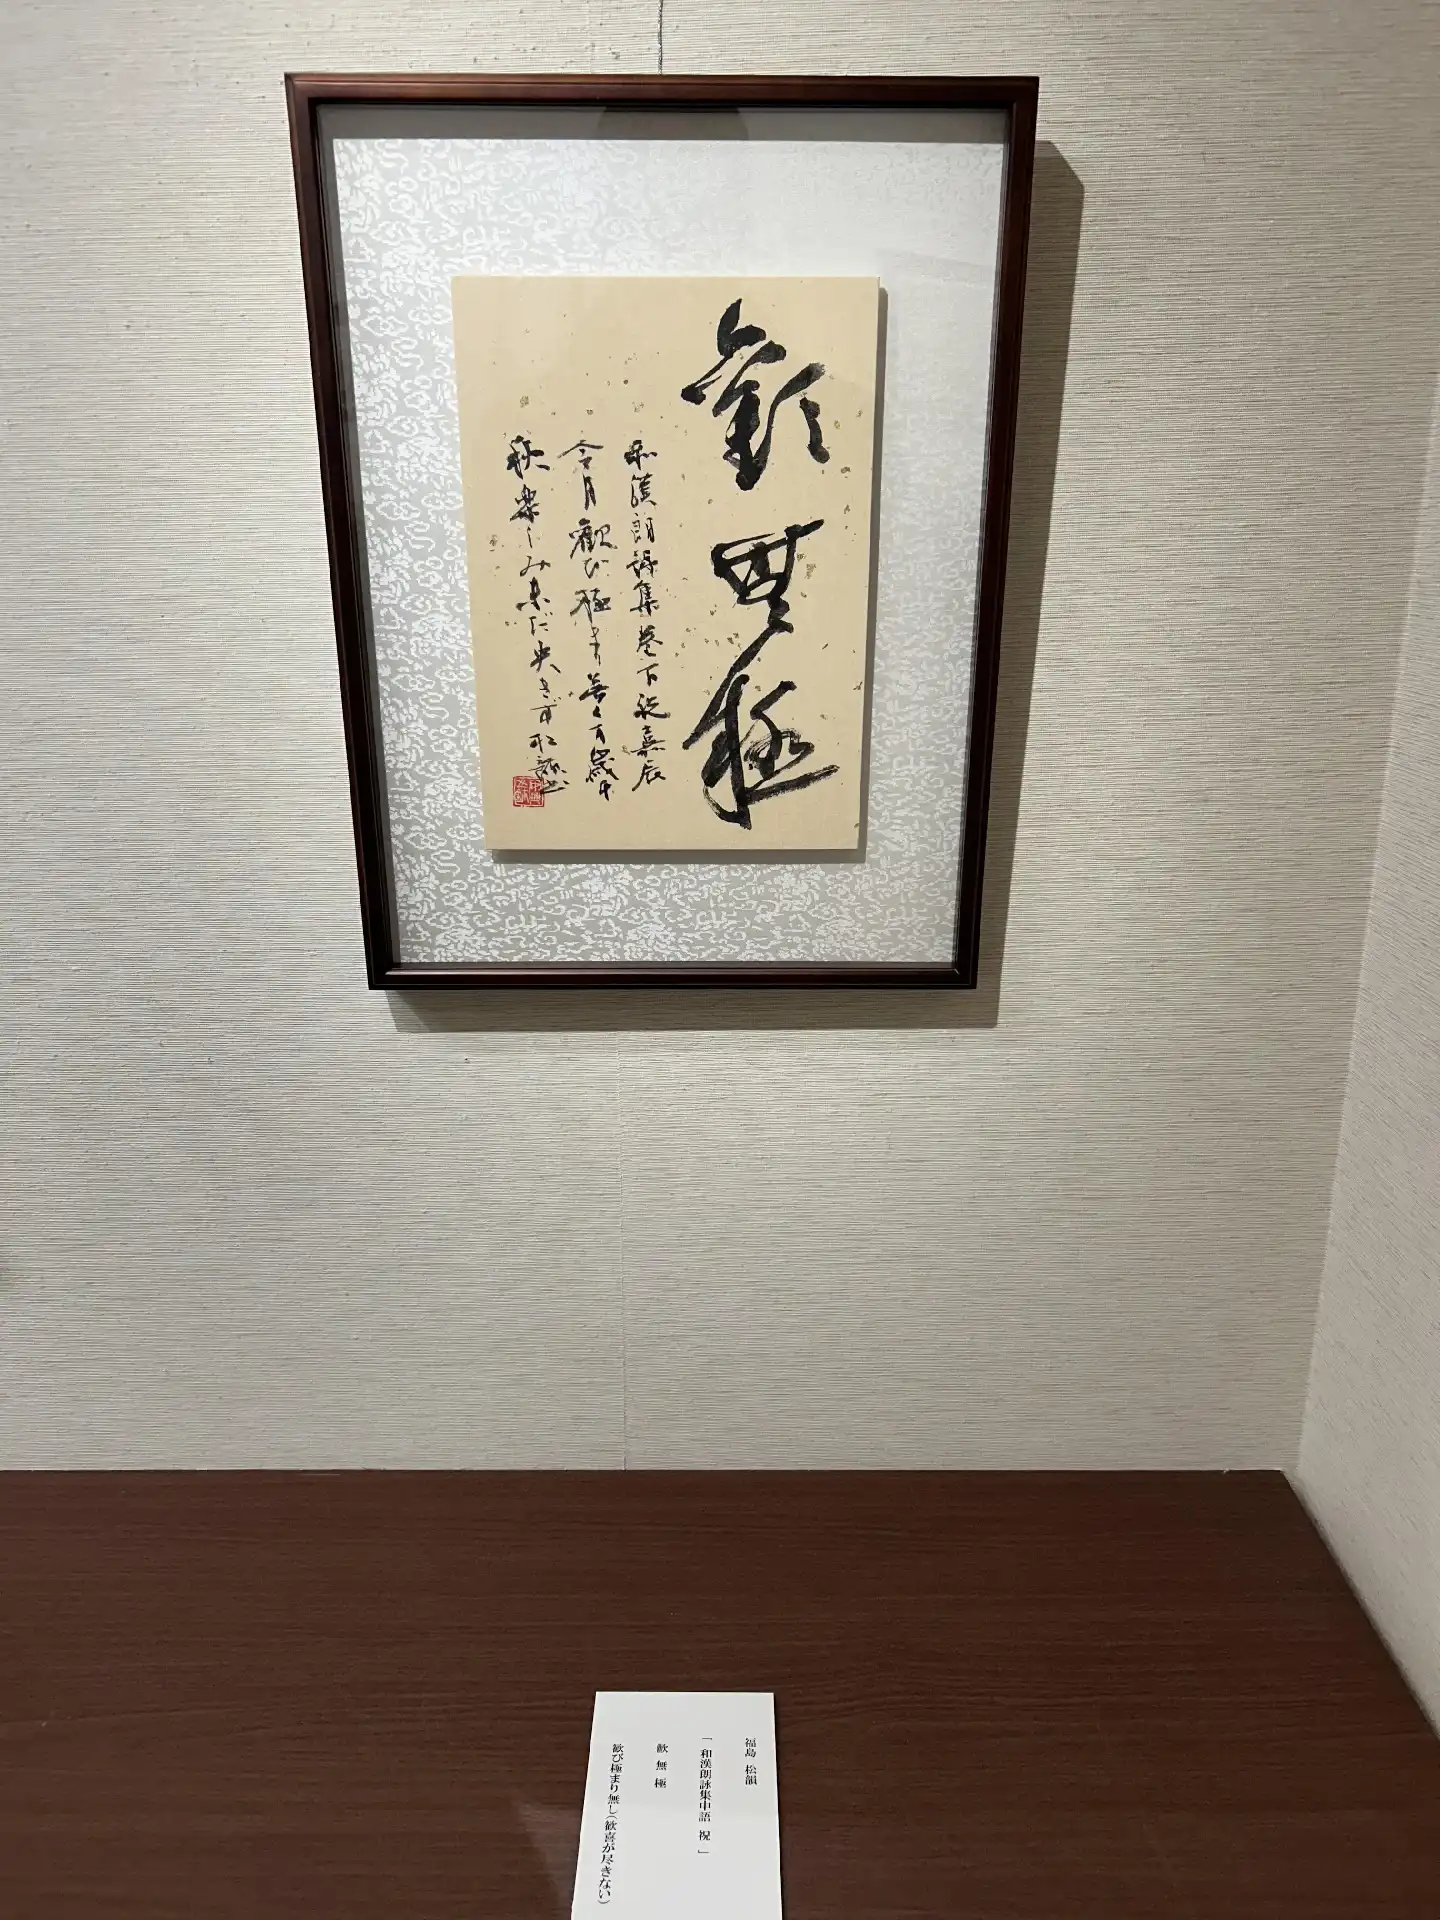 歡無極
和漢朗詠集巻下祝嘉辰
令月歓び極まり無く万歳千
秋楽しみ未だ央きず松韻書
福島 松韻
「和漢朗詠集中語 祝」
歓 無 極
歓び極まり無し(歓喜が尽きない)